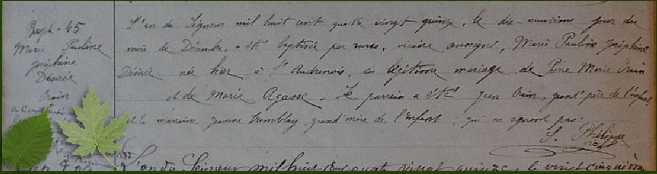 Bapt. 45
Marie Pauline
Joséphine
Désirée
L'an du Seigneur mil huit cent quatre vingt quinze, le dix-neuvième jour du
mois de Décembre, a été baptisée par nous, vicaire soussigné, Marie Pauline Joséphine
Désirée née hier à St Andronois, en légitime mariage de Pierre Marie
et de Marie Agasse. Le parrain a été Jean, grand'père de l'enfant,
et la marraine Jeanne Tremblay, grand mère de l'enfant, qui ne signent pas.
S. Philippe
L'an du Seigneur mil huit cent quatre vingt quinze, le vingt cinquième